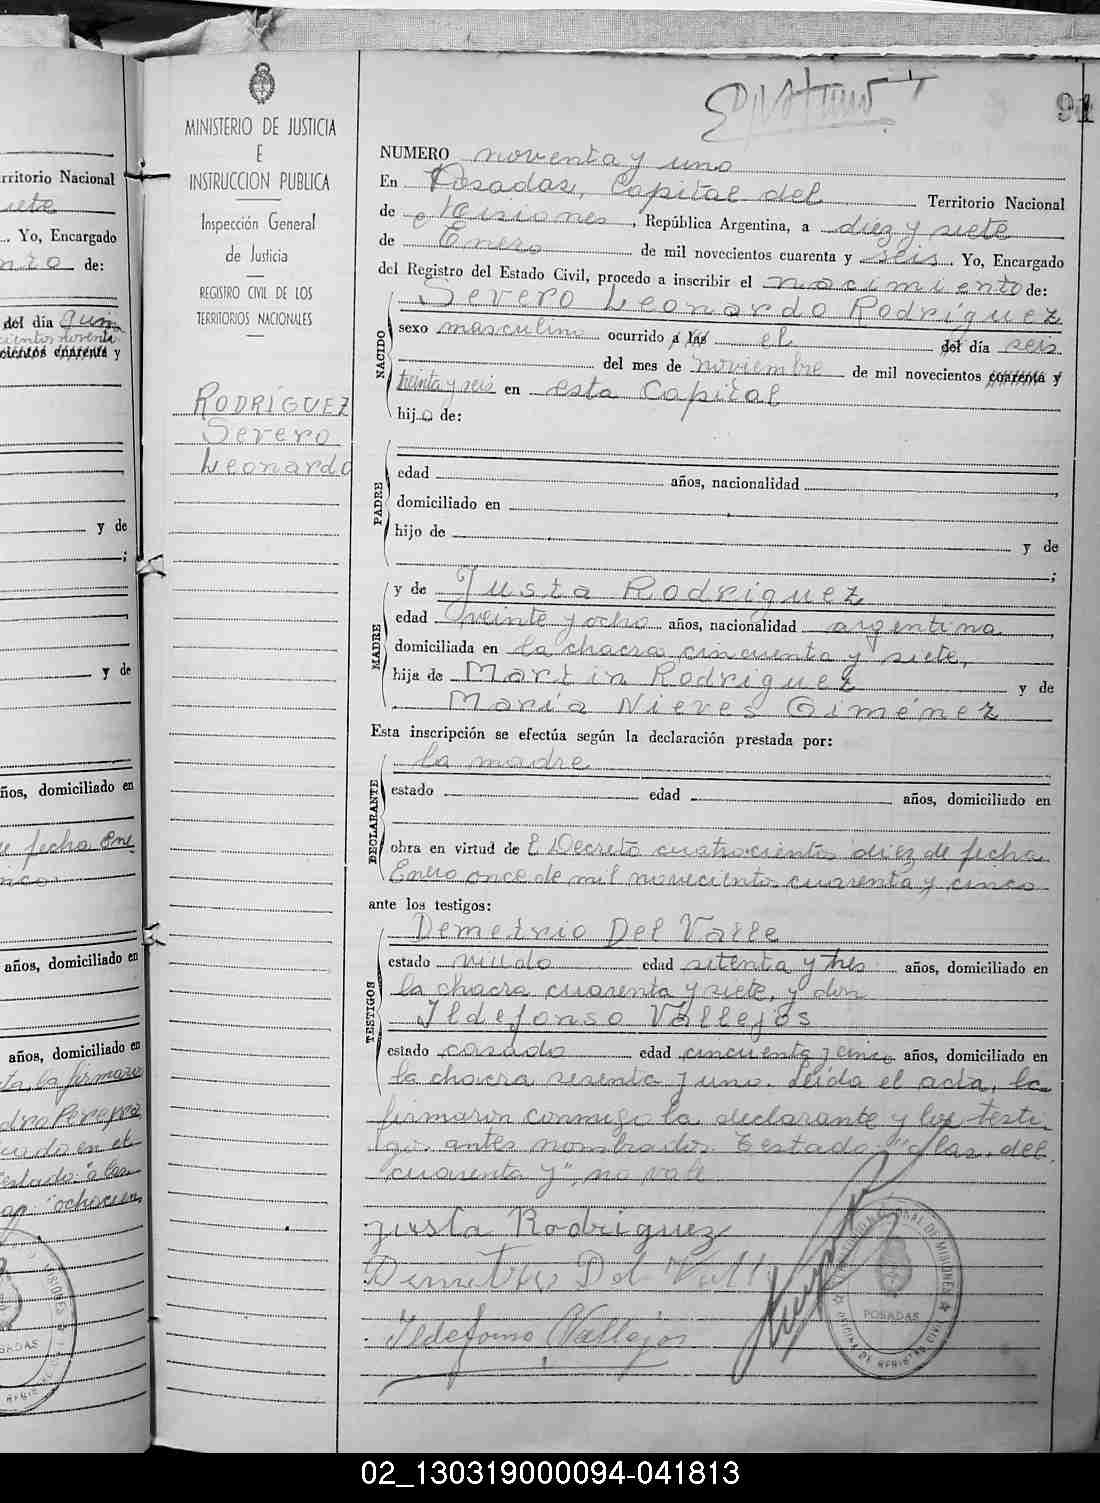 rritorio Nacional
siete
Yo, Encargado
de:
del día
cientos noventa
cientos cuarenta y
y de
;
y de
ños, domiciliado en
fecha Ene
años, domiciliado en
años, domiciliado en
MINISTERIO DE JUSTICIA
E
INSTRUCCION PUBLICA
Inspección General
de Justicia
REGISTRO CIVIL DE LOS
TERRITORIOS NACIONALES
RODRÍGUEZ
Severo
Leonardo
91
NUMERO noventa y uno
En Posadas, Capital del Territorio Nacional
de Misiones, República Argentina, a diez y siete
de Enero de mil novecientos cuarenta y seis. Yo, Encargado
del Registro del Estado Civil, procedo a inscribir el nacimiento de:
NACIDO
Severo Leonardo Rodríguez
sexo masculino ocurrido a las el del día seis
del mes de noviembre de mil novecientos cuarenta y
treinta y seis en esta Capital
hijo de:
PADRE
edad años, nacionalidad ,
domiciliado en
hijo de y de
;
MADRE
y de Justa Rodríguez
edad veinte y ocho años, nacionalidad argentina,
domiciliada en la chacra cincuenta y siete,
hija de Martín Rodríguez y de
María Nieves Giménez
Esta inscripción se efectúa según la declaración prestada por:
DECLARANTE
la madre
estado edad años, domiciliado en
obra en virtud de El Decreto cuatrocientos diez de fecha
Enero once de mil novecientos cuarenta y cinco
ante los testigos:
TESTIGOS
Demetrio Del Valle
estado viudo edad setenta y tres años, domiciliado en
la chacra cuarenta y siete, y don
Ildefonso Vallejos
estado casado edad cincuenta y cinco años, domiciliado en
la chacra sesenta y uno. Leída el acta, la
firmaron conmigo la declarante y los testi-
gos antes nombrados. Testado: "a las. del.
cuarenta y", no vale
justa Rodriguez
Demetrio Del Valle
Ildefonso Vallejos
POSADAS
02_130319000094-041813